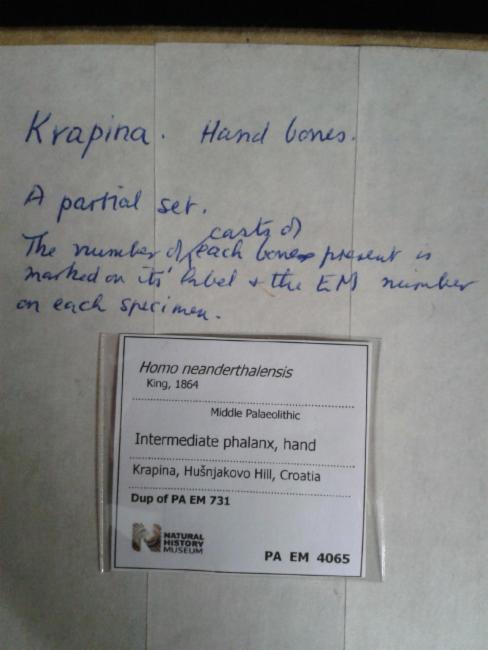 Krapina. Hand bones.
A partial set.
casts of
The number of each bones present is
marked on its' label & the EM number
on each specimen.
Homo neanderthalensis
King, 1864
Middle Palaeolithic
Intermediate phalanx, hand
Krapina, Hušnjakovo Hill, Croatia
Dup of PA EM 731
NATURAL
HISTORY
MUSEUM
PA EM 4065